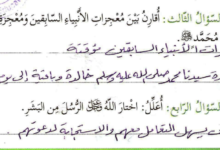 السؤال الثالث: أُقارِنُ بَيْنَ مُعْجِزاتِ الأَنْبِياءِ السّابِقينَ وَمُعْجِزَةِ
مُحَمَّدٍ ﷺ.
ات الأنبياء السابقين مؤقتة
ة سيدنا محمد صلى الله عليه وسلم خالدة وباقية إلى يو
السؤال الرابع: أُعَلِّلُ: اخْتارَ اللهُ ﷻ الرُّسُلَ مِنَ البَشَرِ.
يسهل التعامل معهم والاستجابة لدعوتهم